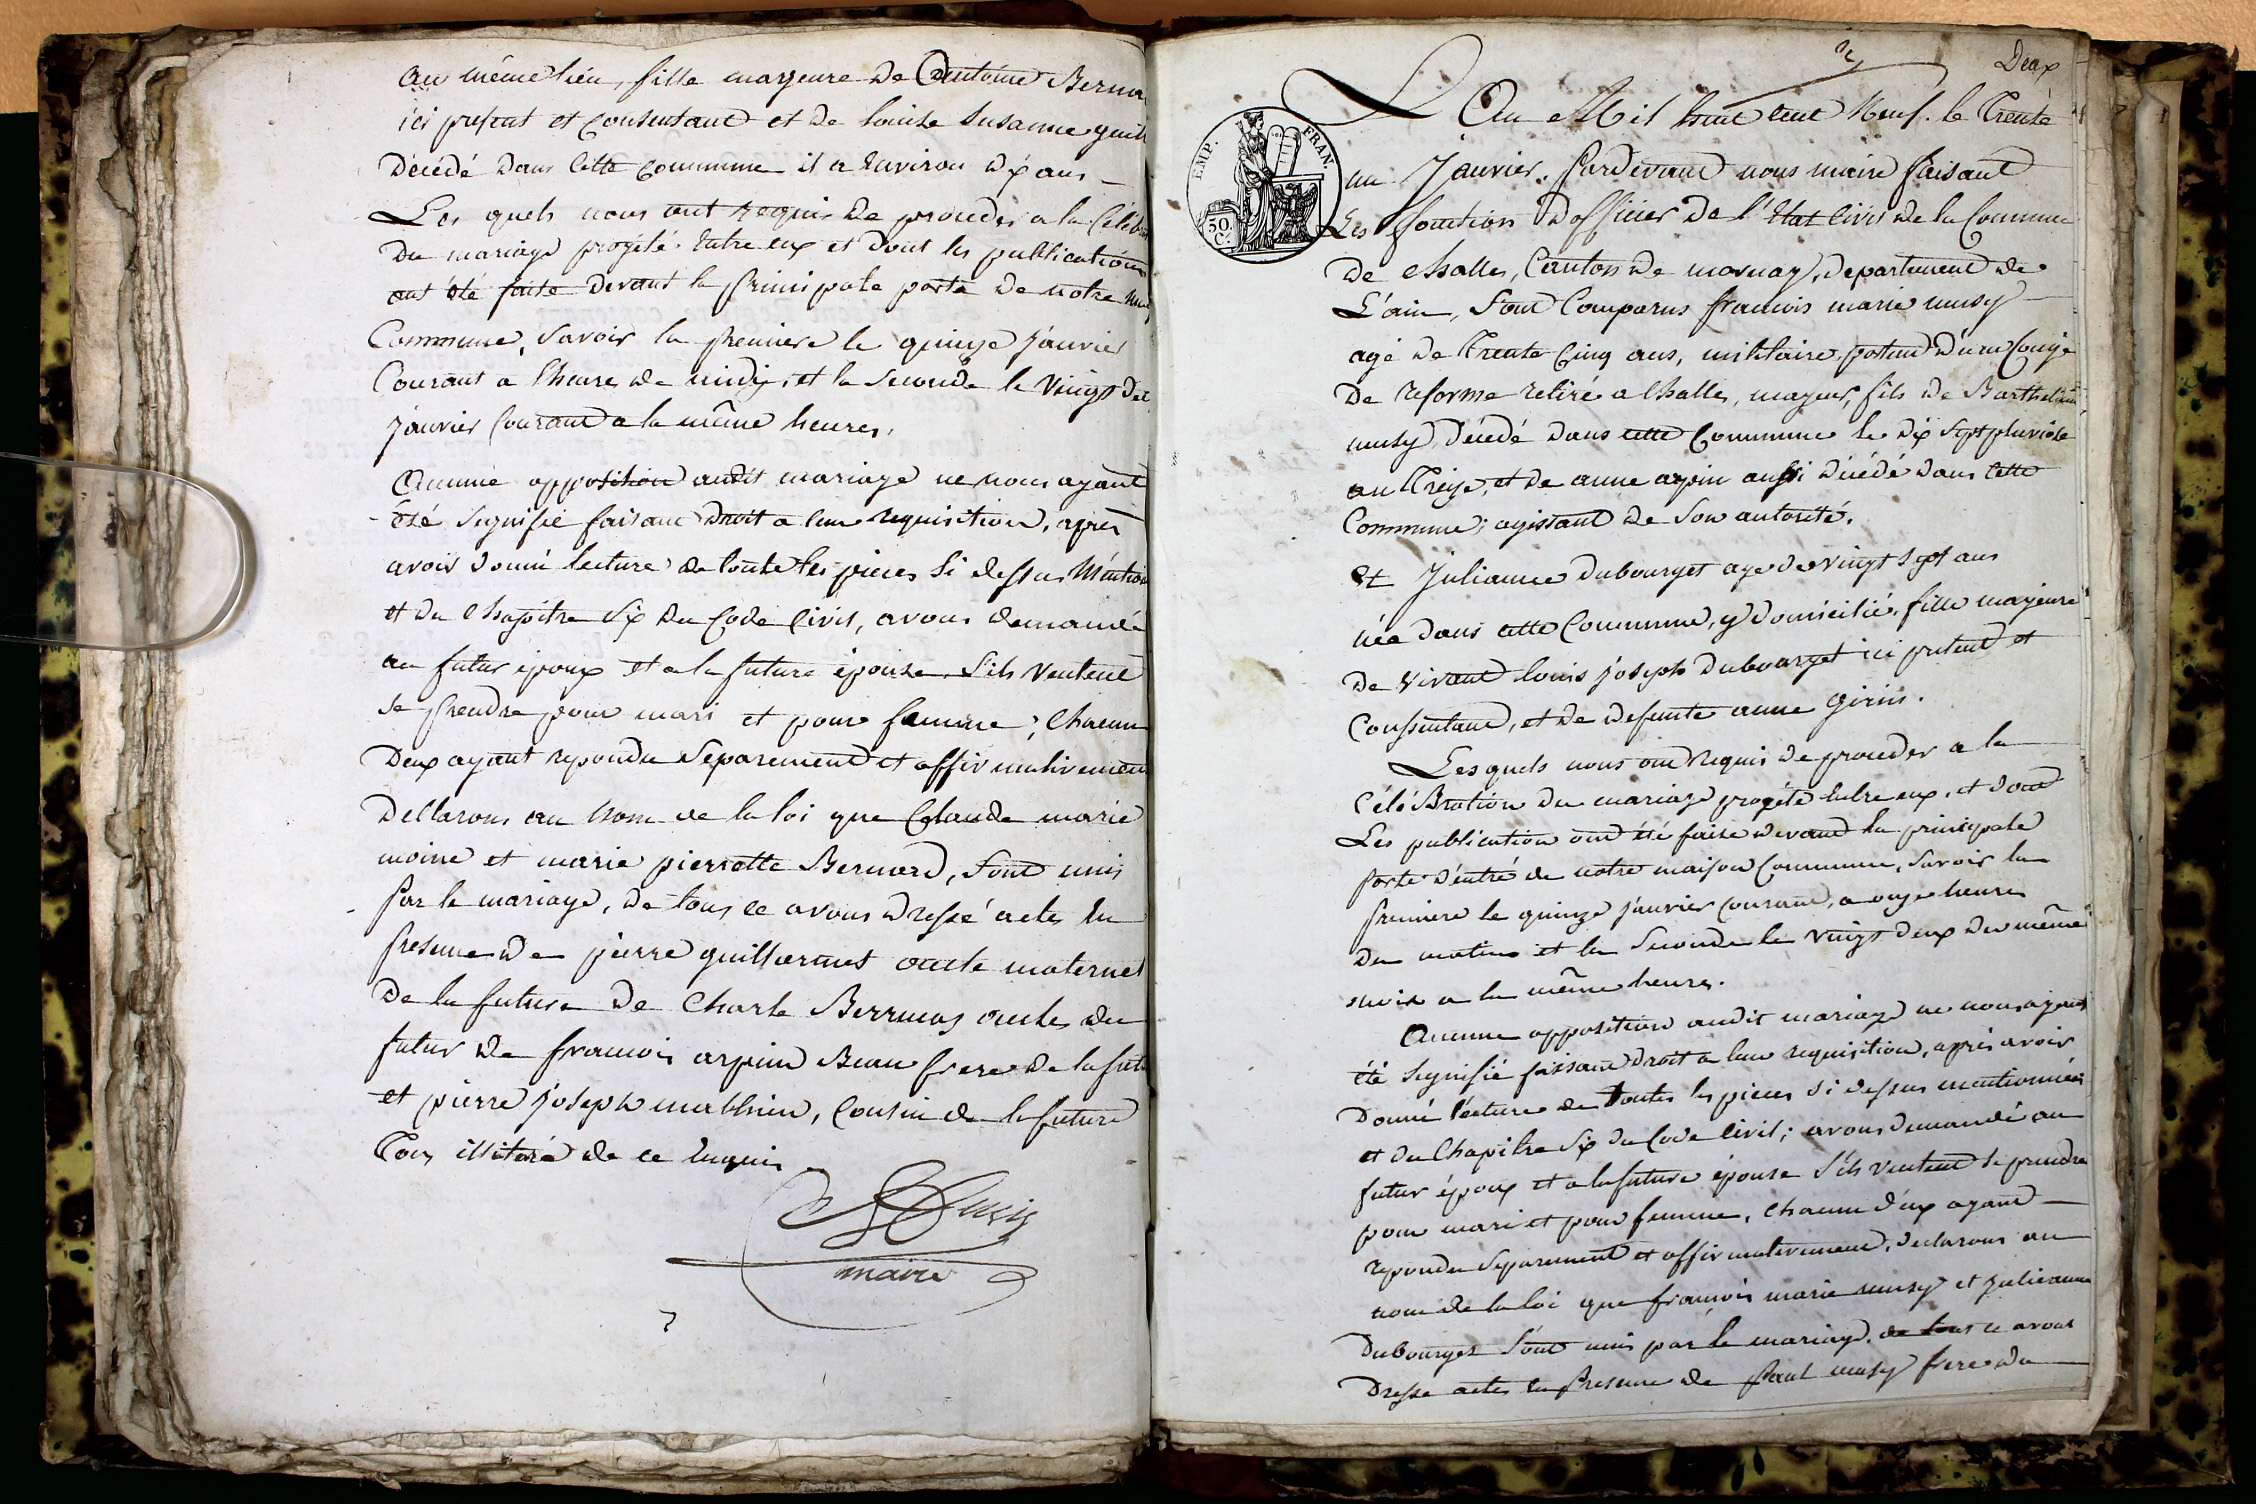 au même lieu, fille mayeure de Antoine Berna
ici present et Consentant et de louise Susanne
Décédé dans Cette Commune il a Environ dix ans
Les quels nous ont requis de proceder a la Célé
du mariage projété Entre eux et dont les publications
ont été faite devant la principale porte de notre
Commune, Savoir la premiere le quinze janvier
Courant a l'heure de midy, et la Seconde le Vingt
janvier Courant a la même heures.
Aucune opposition audit mariage ne nous ayant
été Signifié faisant Droit a leur requisition, après
avoir donné lecture de toute les pieces si dessus Mention
et du Chapitre Six du Code Civil, avons demandé
au futur époux et a la future épouse S'ils Veulent
se prendre pour mari et pour femme; Chacun
Deux ayant repondu Separement et affirmativement
Declarons au Nom de la loi que Claude marie
moine et marie pierrette Bernard, Sont unis
Par le mariage, de tous ce avons dressé actes En
presence de pierre guillermet oncle maternel
De la future De Charle oncles du
futur de francois arpin Beau frere de la
et pierre joseph mathieu, Cousin de la future
Tous illiteré de ce Enquis
maire
Deux
L'An Mil huit Cent Neuf. le Trente
EMP. FRAN.
un Janvier. Pardevant nous maire faisant
Les fonction d'officier de l'Etat Civil de la Commune
50. C.
de Challes, Canton de , departement de
L'ain, Sont Comparus francois marie musy
agé de Trente Cinq ans, militaire, d'un Congé
De reforme retiré a Challes, mayeur, fils de Barthelimi
musy Décédé dans cette Commune le dix Sept pluviose
an Treize, et de anne arpin aussi Décédé dans Cette
Commune; agissant de Son autorité.
Et Julianne Dubourget age de vingt Sept ans
née dans cette Commune, y domicilié, fille mayeure
De Vivant louis joseph Dubourget ici present et
Consentant, et de defunte anne girin.
Lesquels nous ont requis de proceder a la
Célébration du mariage projété Entre eux, et dont
Les publication ont été faite devant la principale
porte d'entré de notre maison Commune, Savoir la
premiere le quinze janvier courant, a onze heures
Du matin et la Seconde le vingt deux du même
mois a la même heures.
Aucune opposition audit mariage ne nous ayant
été Signifié faisant Droit a leur requisition, après avoir
Donné lecture de toutes les pieces si dessus mentionnées
et du Chapitre Six du Code Civil; avons demandé au
futur époux et a la future épouse S'ils veulent se prendre
pour mari et pour femme, Chacun d'eux ayant
repondu Separement et affirmativement, declarons au
nom de la loi que francois marie musy et Julianne
Dubourget Sont unis par le mariage. de tout ce avons
Dresse actes En Presence de Paul musy frere du